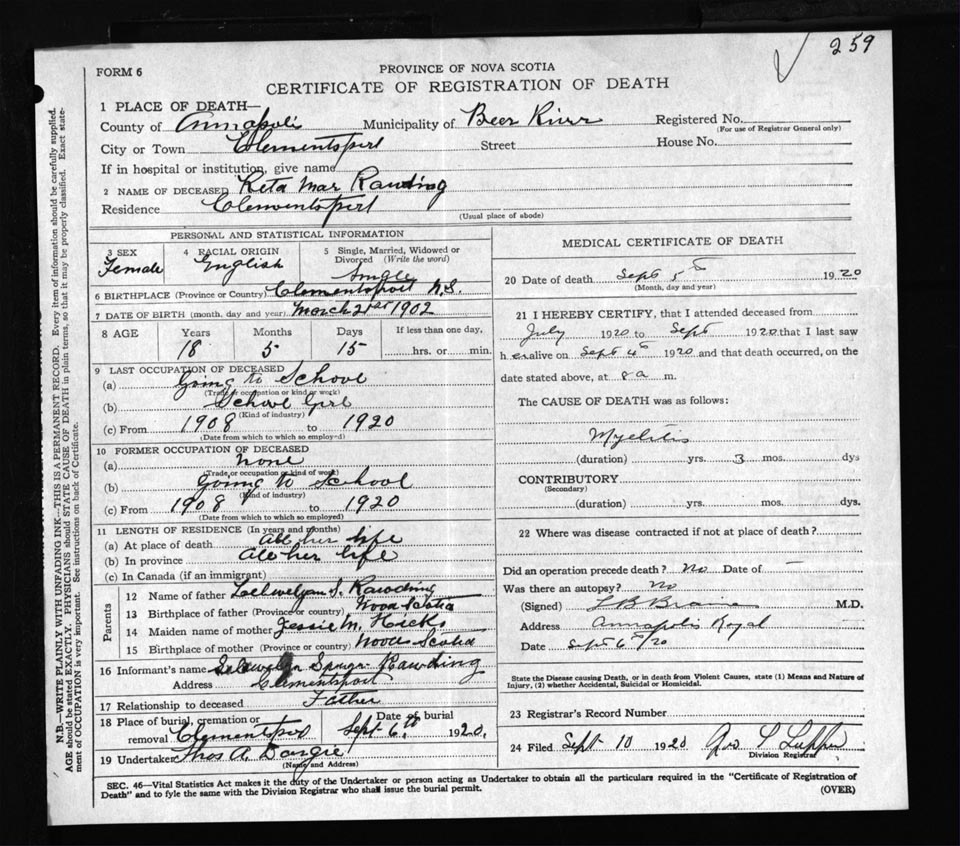 259
FORM 6
PROVINCE OF NOVA SCOTIA
CERTIFICATE OF REGISTRATION OF DEATH
1 PLACE OF DEATH—
County of Annapoli Municipality of Bear River Registered No.
(For use of Registrar General only)
City or Town Clementsport Street House No.
If in hospital or institution, give name
2 NAME OF DECEASED Reta Mae Rawding
Residence Clementsport
(Usual place of abode)
PERSONAL AND STATISTICAL INFORMATION
3 SEX 4 RACIAL ORIGIN 5 Single, Married, Widowed or Divorced (Write the word)
Female English Single
6 BIRTHPLACE (Province or Country) Clementsport N.S.
7 DATE OF BIRTH (month, day and year) March 21st 1902
8 AGE Years Months Days If less than one day,
18 5 15 hrs. or min.
9 LAST OCCUPATION OF DECEASED
(a) Going to School
(Trade or occupation or kind or work)
(b) School Girl
(Kind of industry)
(c) From 1908 to 1920
(Date from which to which so employed)
10 FORMER OCCUPATION OF DECEASED
(a) none
(Trade or occupation or kind of work)
(b) Going to School
(Kind of industry)
(c) From 1908 to 1920
(Date from which to which so employed)
11 LENGTH OF RESIDENCE (In years and months)
(a) At place of death All her life
(b) In province All her life
(c) In Canada (if an immigrant)
Parents
12 Name of father Llewelyn S. Rawding
13 Birthplace of father (Province or country) Nova Scotia
14 Maiden name of mother Jessie M. Hicks
15 Birthplace of mother (Province or country) Nova Scotia
16 Informant's name Llewelyn Spurr Rawding
Address Clementsport
17 Relationship to deceased Father
18 Place of burial, cremation or removal Clementspo Date of burial Sept 6th 1920.
19 Undertaker Thos A. Dargie
(Name and Address)
MEDICAL CERTIFICATE OF DEATH
20 Date of death Sept 5th 1920
(Month, day and year)
21 I HEREBY CERTIFY, that I attended deceased from
July 1920 to Sept 1920 that I last saw
h er alive on Sept 4th 1920 and that death occurred, on the
date stated above, at 8 a m.
The CAUSE OF DEATH was as follows:
Myelitis
(duration) yrs. 3 mos. dys
CONTRIBUTORY
(Secondary)
(duration) yrs. mos. dys.
22 Where was disease contracted if not at place of death?
Did an operation precede death? No Date of —
Was there an autopsy? No
(Signed) L B Braine M.D.
Address Annapolis Royal
Date Sept 6th/20
State the Disease causing Death, or in death from Violent Causes, state (1) Means and Nature of
Injury, (2) whether Accidental, Suicidal or Homicidal.
23 Registrar's Record Number
24 Filed Sept 10 1920
Division Registrar
SEC. 46—Vital Statistics Act makes it the duty of the Undertaker or person acting as Undertaker to obtain all the particulars required in the "Certificate of Registration of
Death" and to fyle the same with the Division Registrar who shall issue the burial permit.
(OVER)
N.B.—WRITE PLAINLY WITH UNFADING INK—THIS IS A PERMANENT RECORD. Every item of information should be carefully supplied.
AGE should be stated EXACTLY. PHYSICIANS should STATE CAUSE OF DEATH in plain terms, so that it may be properly classified. Exact state-
ment of OCCUPATION is very important. See instructions on back of Certificate.